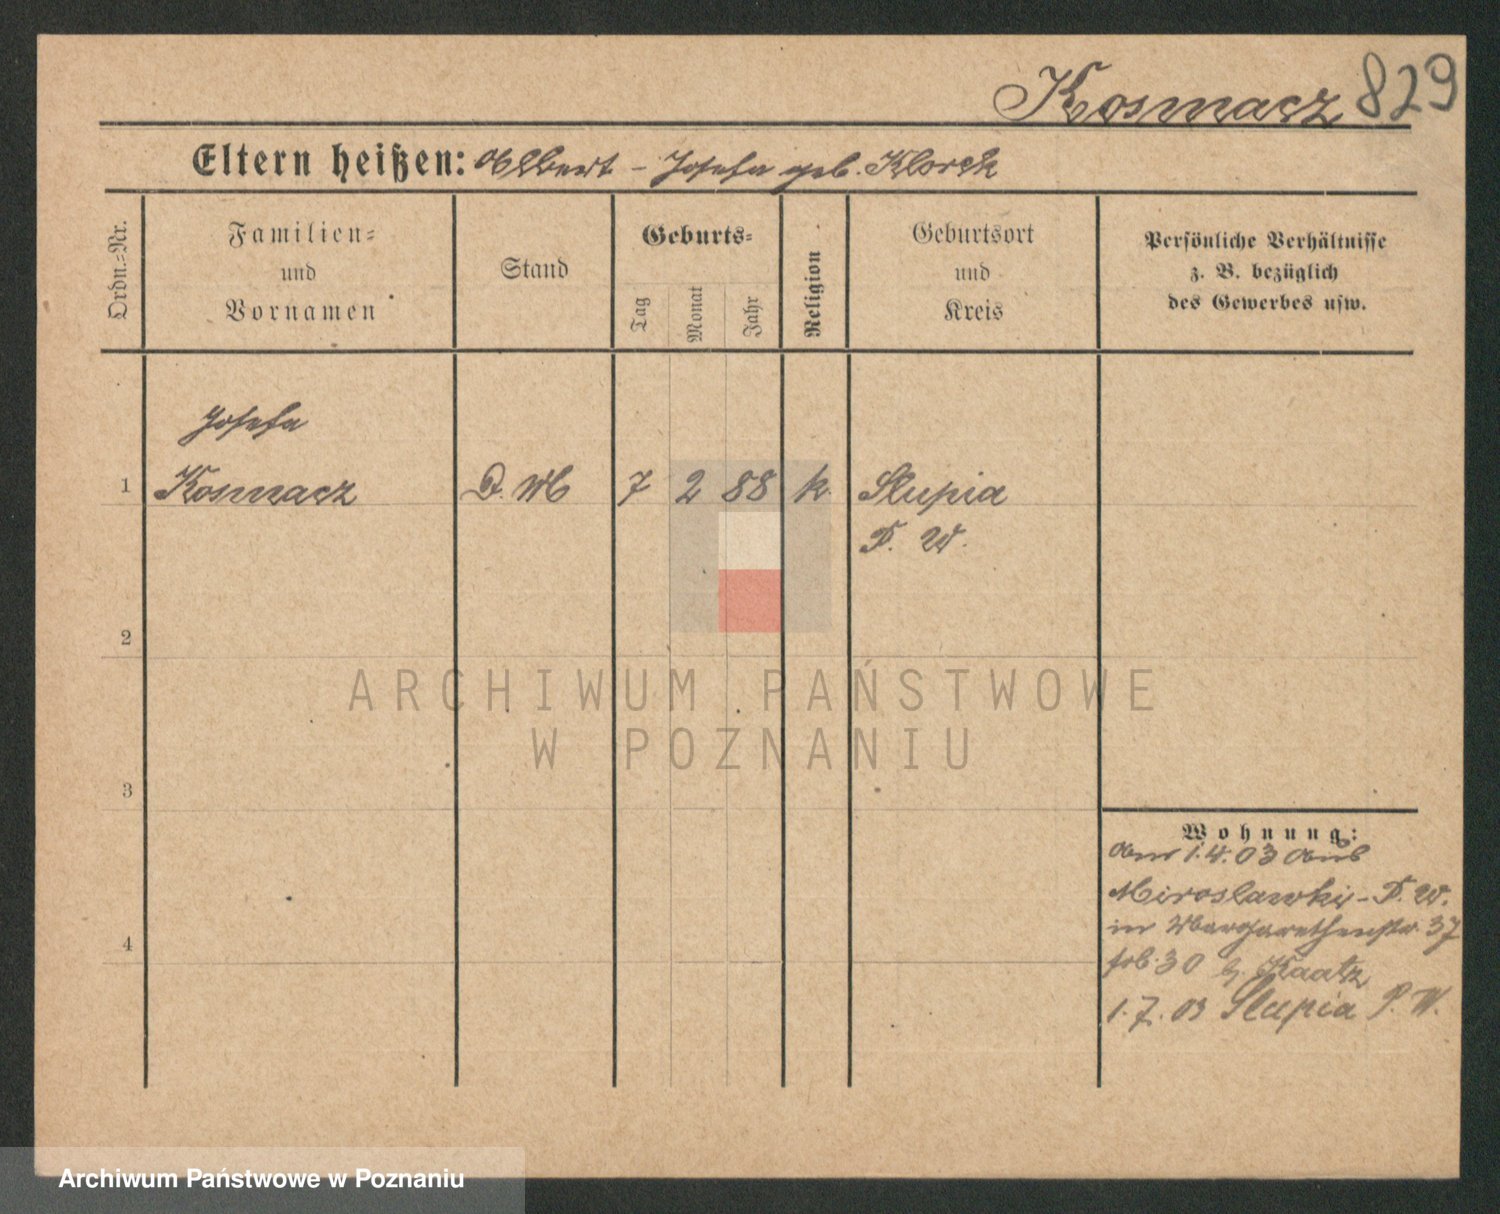 Kosmacz 829
Eltern heißen: Albert - Josefa geb. Klorek
Ordn.=Nr.
Familien=
und
Vornamen
Stand
Geburts=
Tag
Monat
Jahr
Religion
Geburtsort
und
Kreis
Persönliche Verhältnisse
z. B. bezüglich
des Gewerbes usw.
Josefa
1 Kosmacz D. M 7 2 88 k. Slupia
P. W.
2
3
4
Wohnung:
am 1.4.03 aus
Miroslawki - P. W.
in Margarethenstr. 37
30 b. Kaatz
1.7.03 Slupia P. W.
ARCHIWUM PAŃSTWOWE
W POZNANIU
Archiwum Państwowe w Poznaniu